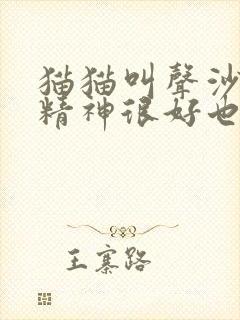 猫猫叫聲沙
精神很好也
王寨路